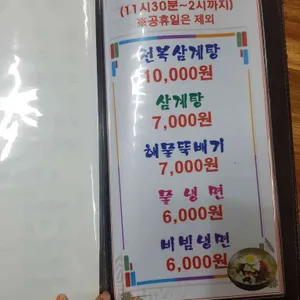 (11시30분~2시까지)
※공휴일은 제외
전복삼계탕
10,000원
삼계탕
7,000원
해물뚝배기
7,000원
물냉면
6,000원
비빔냉면
6,000원